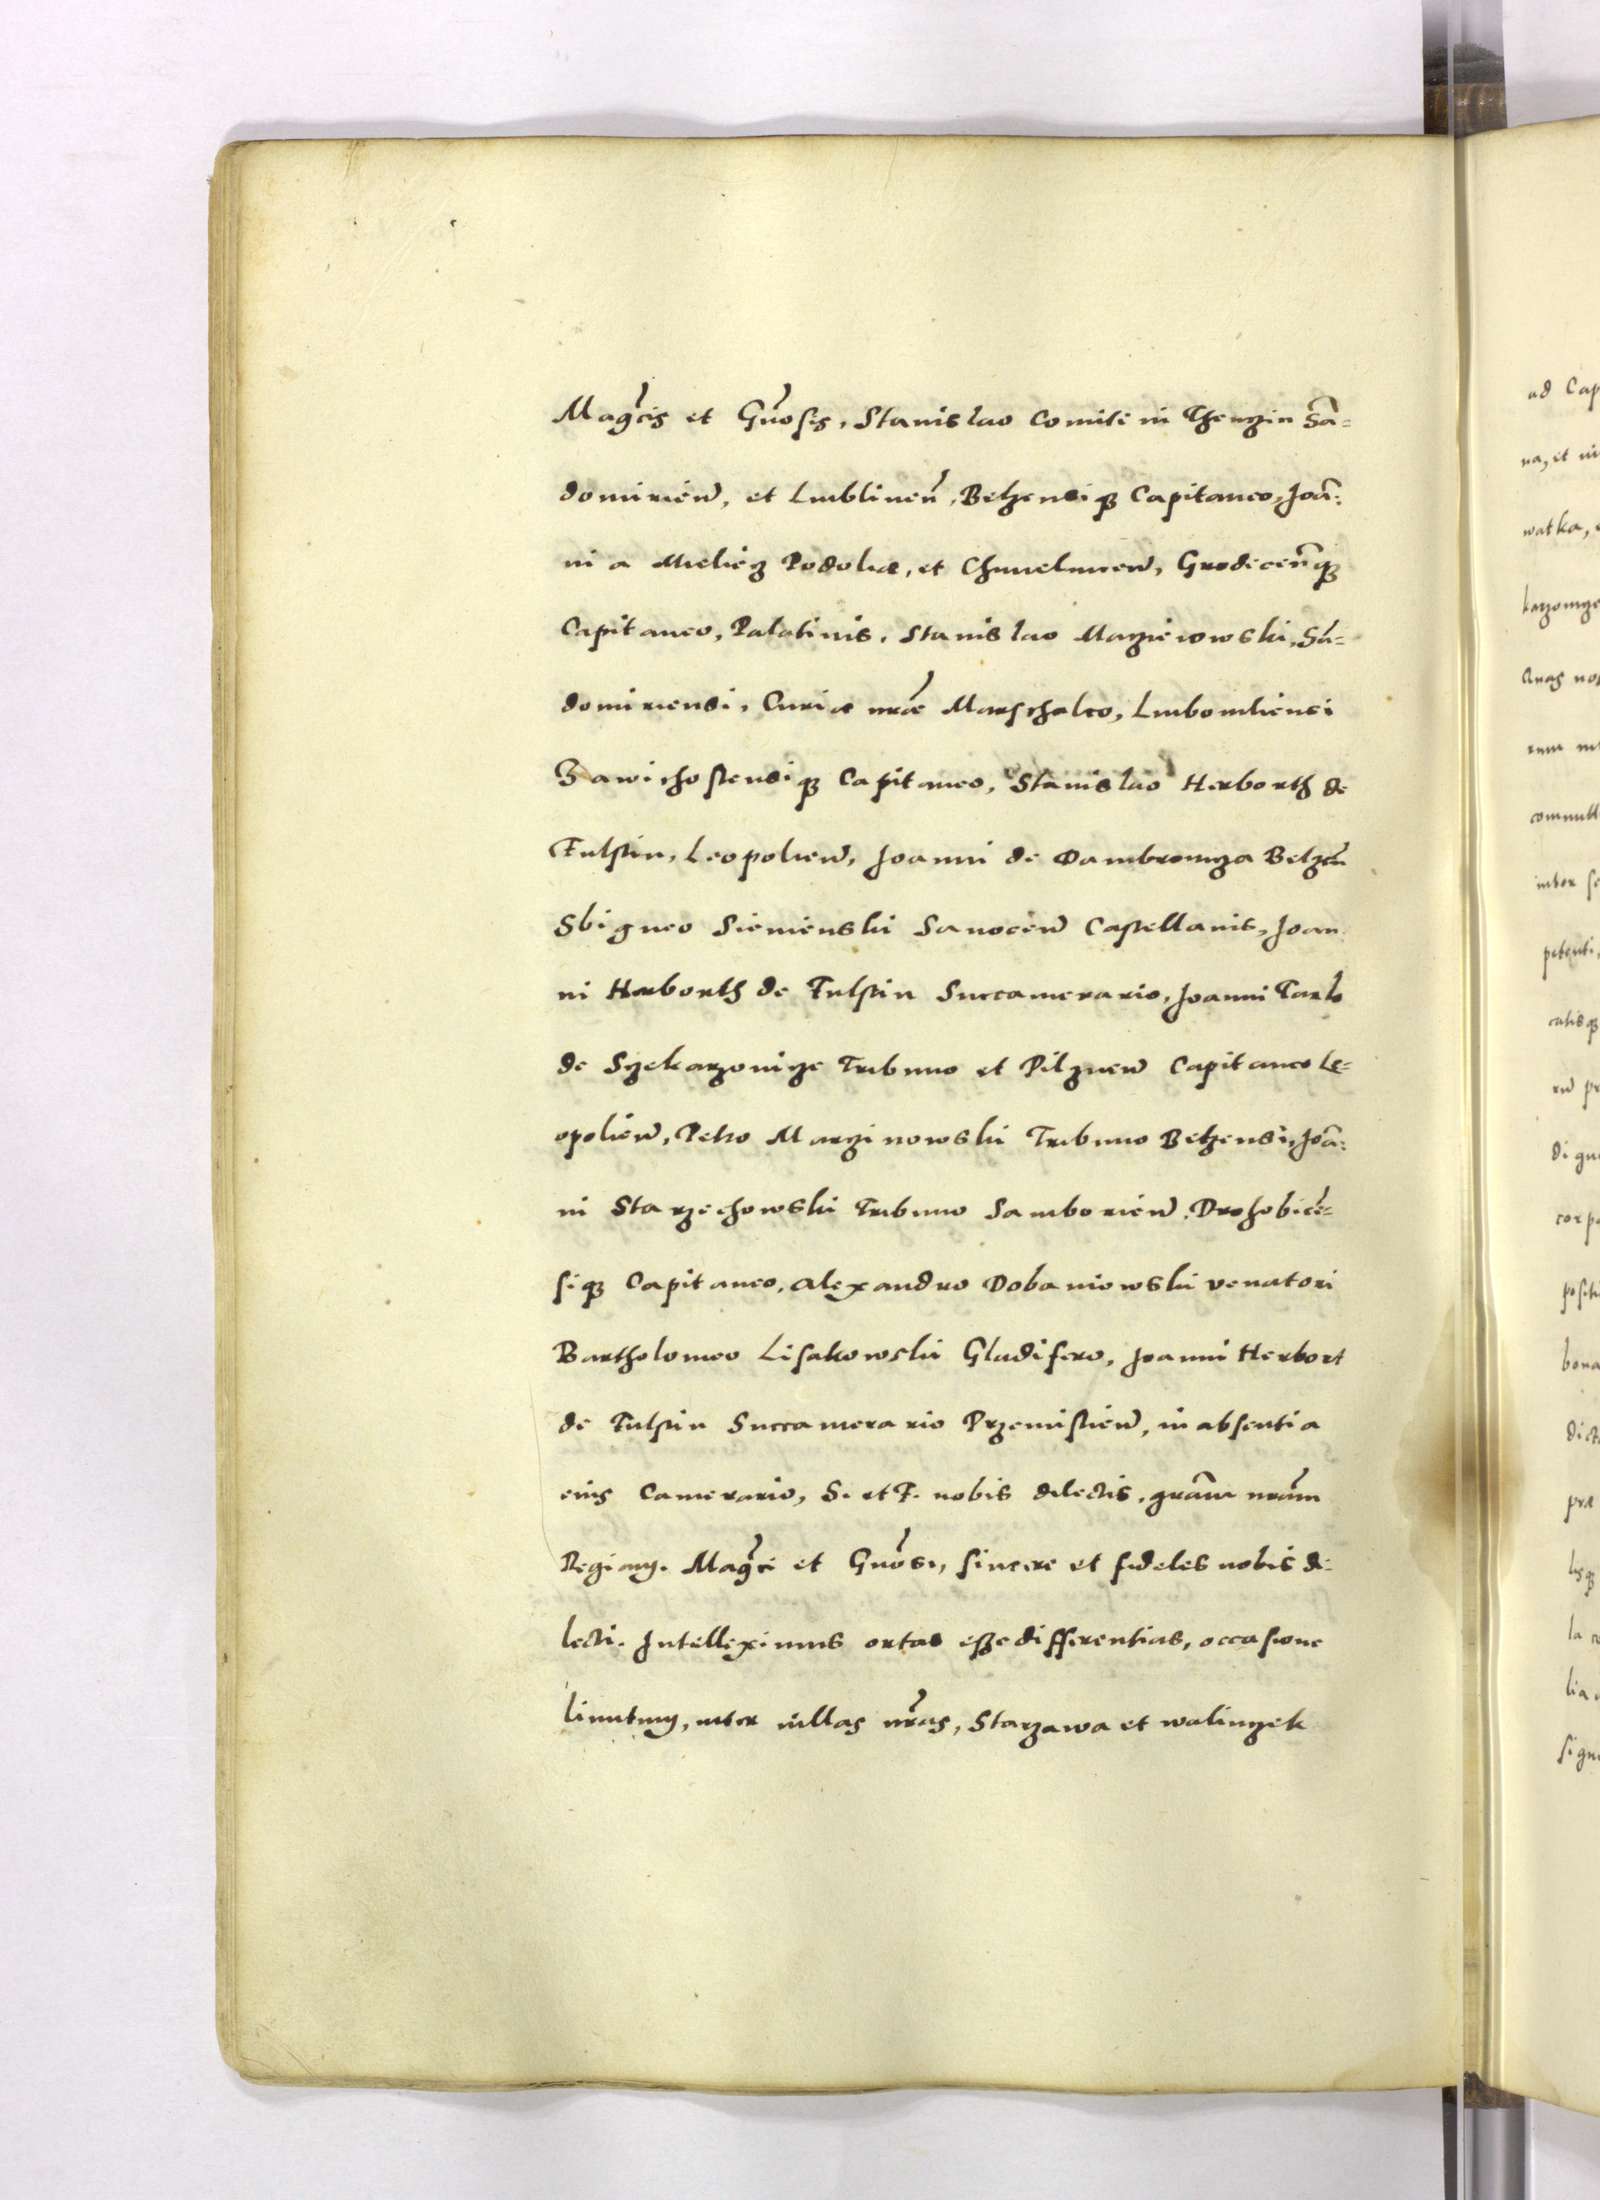 Magcis et Gñosis, Stanislao Comiti in Thenczin Sã-
domirieñ, et Lublineñ, Belzensiq3 Capitaneo, Joã:
ni a Mieliecz Podoliæ, et Chmielnicen, Grodecenq3
Capitaneo, Palatinis, Stanislao Maczieiowski, Sã-
domiriensi, Curiæ nræ Marschalco, Lubomliensi
Zawichostensiq3 Capitaneo, Stanislao Herborth de
Fulstin, Leopolieñ, Joanni de Dambrowycza Belzeñ
Sbigneo Siemienski Sanoceñ Castellanis, Joan
ni Herborth de Fulstin Succamerario, Joanni Tarlo
de Sczekarzovicze Tribuno et Pilzneñ Capitaneo Le-
opolieñ, Petro Marzinowski Tribuno Belzensi, Joã:
ni Starzechowski Tribuno Samborieñ, Drohobicẽ-
siq3 Capitaneo, Alexandro Dobaniowski venatori
Bartholomeo Lisakowski Gladifero, Joanni Herbort
de Fulstin Succamerario Przemislieñ, in absentia
eius Camerario, S. et F. nobis dilectis, grãm nrãm
Regiam. Magci et Gñosi, sincere et fideles nobis di-
lecti. Intelleximus ortas esse differentias, occasione
limitum, inter villas nras, Starzawa et walinczek